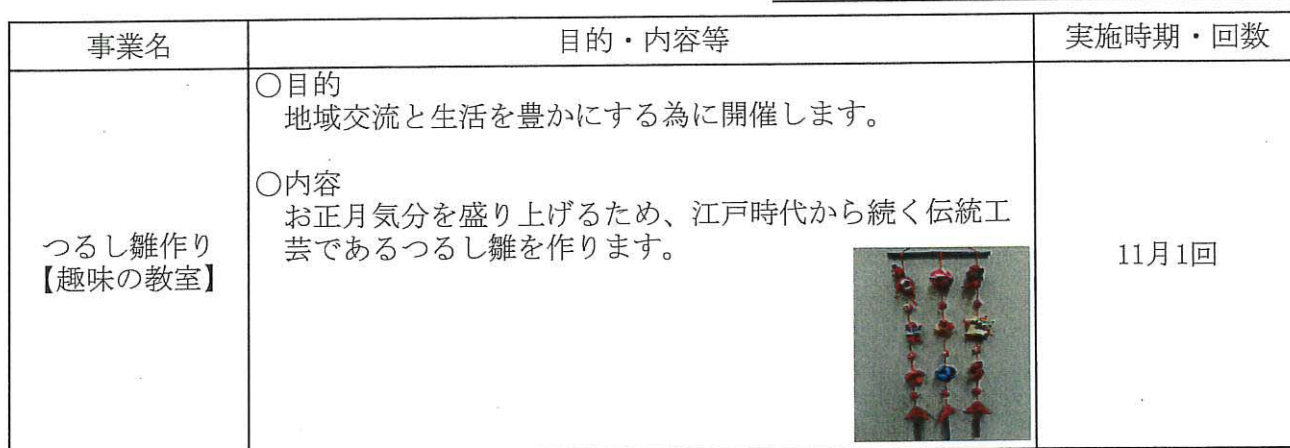 事業名
目的・内容等
実施時期・回数
つるし雛作り
【趣味の教室】
○目的
地域交流と生活を豊かにする為に開催します。
○内容
お正月気分を盛り上げるため、江戸時代から続く伝統工
芸であるつるし雛を作ります。
11月1回